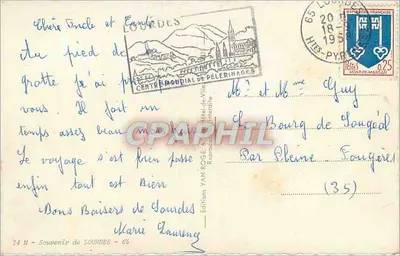 Chère Tante et Tonton
Au pied de la
grotte j'ai prié pour
vous. Il fait un
temps assez beau
Le voyage s'est bien passé
enfin tout est Bien
Bons Baisers de Lourdes
Marie Laurence
LOURDES
CENTRE MONDIAL DE PÈLERINAGES
65 LOURDES
18-
19
Htes-PYR
0,25
MONT-DE-MARSAN
Mr et Mme Guy
Le Bourg de Sougeal
Par Pleine Fougères
(35)
CPAPHIL
Editions YAN
14 N - Souvenir de LOURDES - 65